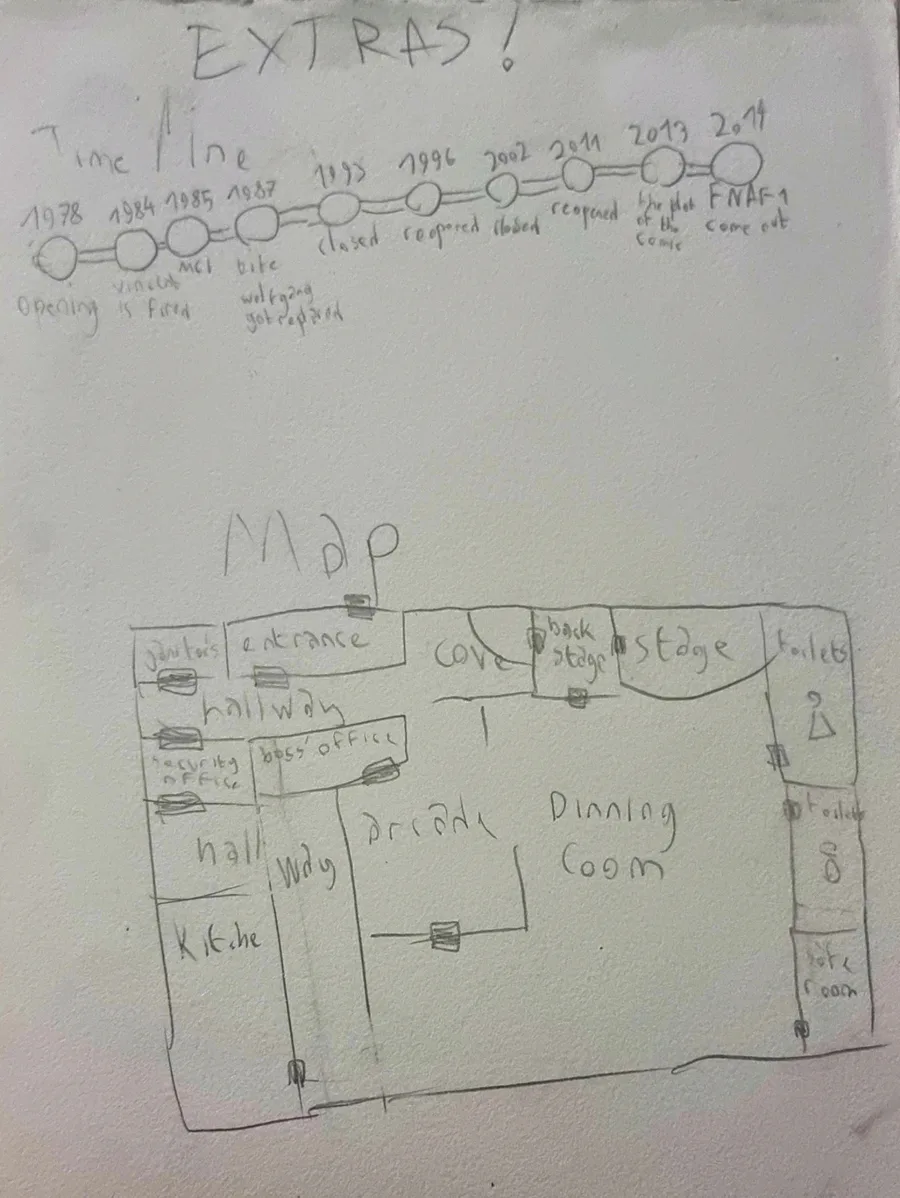 EXTRAS!
Time line
1978
1984
1985
1987
1993
1996
2002
2011
2013
2014
opening
is fired
MCI
bite
wolfgang
got replaced
closed
reopened
closed
reopened
the plot
of the
comic
FNAF 1
come out
Map
janitor's
entrance
cove
back
stage
stage
toilets
hallway
security
office
boss' office
hall way
arcade
Dinning
room
toilets
Kitche
room